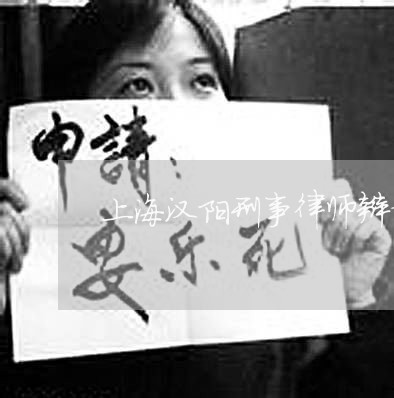 申請：
上海汉阳刑事律师辩
安乐死